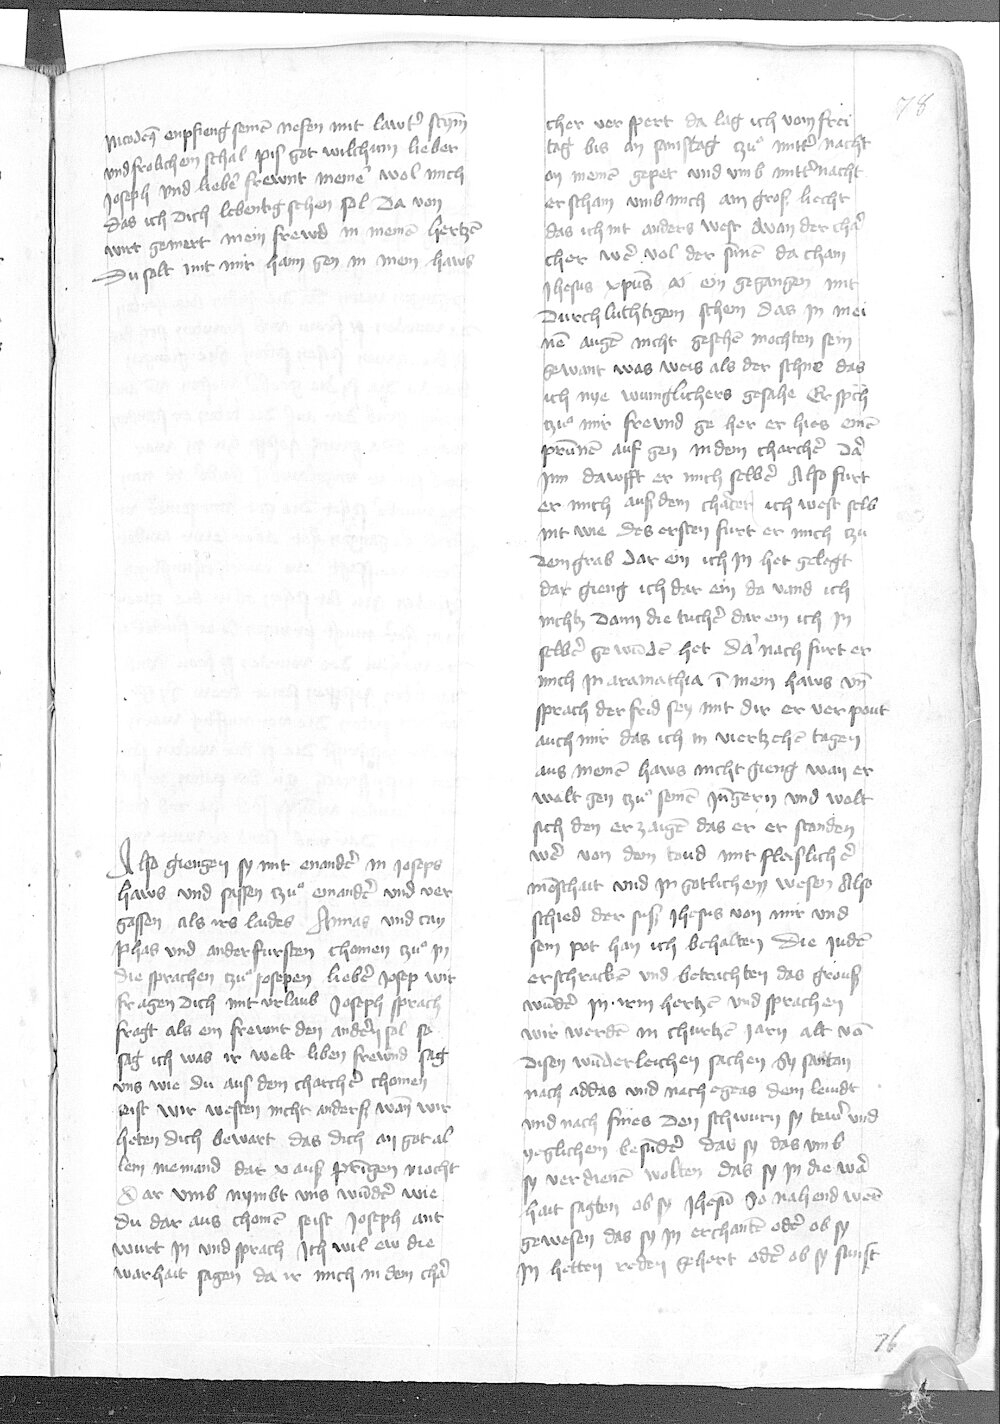 78
Nicodeꝰ enpfieng seinē nefen mit lawtˀ stȳm
vnd frolichem schal pis got wilchum lieber
Joseph vnd liebˀ frewnt meinē wol mich
das ich dich lebentig sehen sol Da von
wirt gemert mein frewd in meinē hertzē
Du solt mit mir haim gen in mein haws
Also giengen sy mit enandˀ in Josephs
haws vnd sassen tzuͦ einandˀ vnd ver
gassen als irs laides Annas vnd cay
phas vnd ander fursten chomen tzuͦ in
die sprachen tzuͦ Josepen liebˀ Josep wir
fragen dich mit vrlaub Joseph sprach
fragt als ein frewnt den andˀn sol so
sag ich was ir welt liben frewnd sag
vns wie du aus dem charchˀ chomen
seist wir westen nicht anders wan wir
heten dich bewart das dich an got al
lein niemand dar v̈ auß prīgen mocht
Dar vmb nymbt vns wūdˀ wie
du dar aus chomē seist Joseph ant
wurt in vnd sprach Ich wil ew die
warhait sagen da ir mich in dem chaˀ
cher ver spert da lag ich vom frei
tag bis an samstag tzuͦ mittˀ nacht
an meinē gepet vnd vmb mittˀnacht
er scham vmb mich ain groß liecht
das ich nit anders west dwan der chaˀ
cher wˀ vol der sūnē da cham
Jhesus xp̄us ein gegangen mit
Durch luchtigem schein das in mei
nē augē nicht gesehē mochten sein
gewant was weis als der schne das
ich nye wuniglichers gesahe Er spch
tzuͦ mir frewnd ge her er hies einē
prūnē auf gen in dem charchˀ Daˀ
inn dawfft er mich selbˀ Also furt
er mich auß dem chacer ich west selb
nit wie des ersten furt er mich tzu
dem grab dar ein ich in het gelegt
dar gieng ich dar ein da vand ich
nichtz dann die tuchˀ dar ein ich in
selbˀ gewūdē het Daˀnach furt er
mich in aramathia ī mein haws vn̄
sprach der frid sey mit dir er ver pout
auch mir das ich in viertzehē tagen
aus meinē haws nicht gieng wan er
walt gen tzuͦ seinē Jūgern vnd wolt
sich den erzaigē das er er standen
wˀ von dem toud mit fleislichˀ
mēschait vnd in gotlichem wesen Also
schied der suß Jhesus von mir vnd
sein pot han ich behalten Die Judē
erschrackē vnd betrachten das grouß
wūdˀ in irm hertzē vnd sprachen
wir werdē in churtzē Jarn alt vō
disen wūderleichen sachen Sy santan
nach addas vnd nach egeas dem leuidt
vnd nach fines Den schwurn sy tewˀ vnd
yeglichem besūdˀ daz sy das vmb
sy verdienē wolten das sy in die waˀ
hait sagten ob sy Jhesū so nahend werē
gewesen das sy in erchantē odˀ ob sy
in hetten reden gehort odˀ ob sy sanft
76